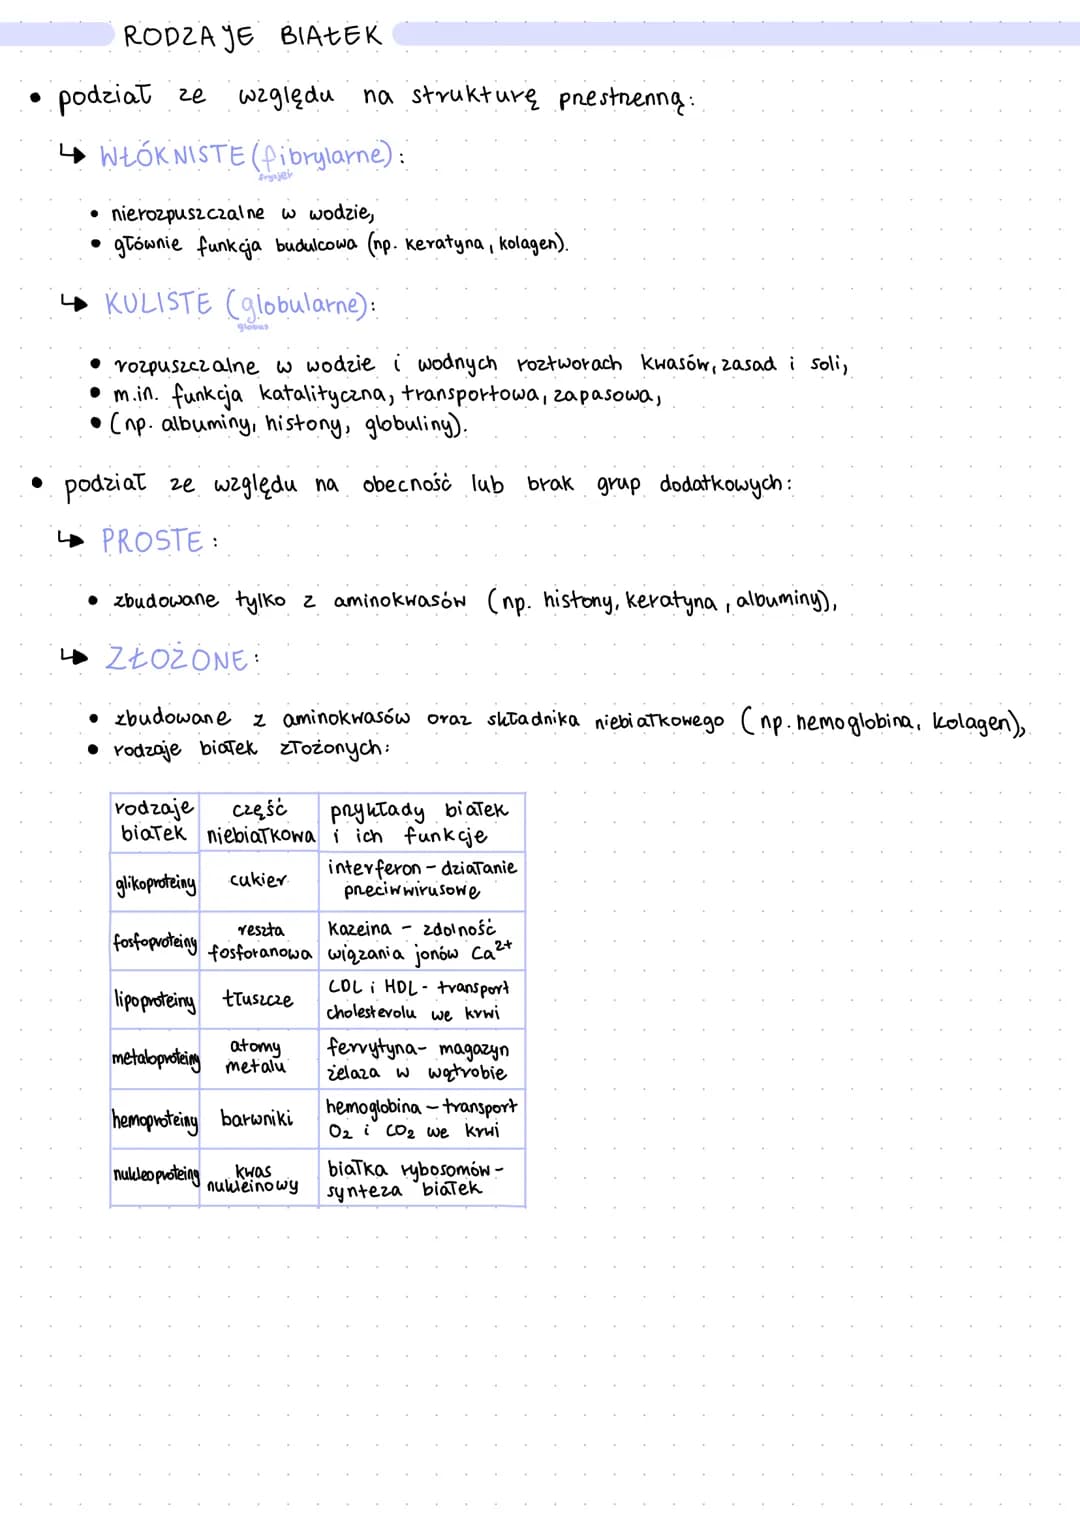 RODZAJE BIAŁEK
• podział ze względu na strukturę przestrzenną:
↳ WŁÓKNISTE (fibrylarne):
fryzjer
• nierozpuszczalne w wodzie,
• głównie funkcja budulcowa (np. keratyna, kolagen).
↳ KULISTE (globularne):
globus
• rozpuszczalne w wodzie i wodnych roztworach kwasów, zasad i soli,
• m.in. funkcja katalityczna, transportowa, zapasowa,
• (np. albuminy, histony, globuliny).
• podział ze względu na obecność lub brak grup dodatkowych:
↳ PROSTE:
• zbudowane tylko z aminokwasów (np. histony, keratyna, albuminy),
↳ ZŁOŻONE:
• zbudowane z aminokwasów oraz składnika niebiałkowego (np. hemoglobina, kolagen),
• rodzaje białek złożonych:
rodzaje część przykłady białek
białek niebiałkowa i ich funkcje
glikoproteiny cukier interferon - działanie
przeciwwirusowe
fosfoproteiny reszta kazeina - zdolność
fosforanowa wiązania jonów Ca²⁺
lipoproteiny tłuszcze LDL i HDL - transport
cholesterolu we krwi
metaloproteiny atomy ferrytyna - magazyn
metalu żelaza w wątrobie
hemoproteiny barwniki hemoglobina - transport
O₂ i CO₂ we krwi
nukleoproteiny kwas białka rybosomów -
nukleinowy synteza białek